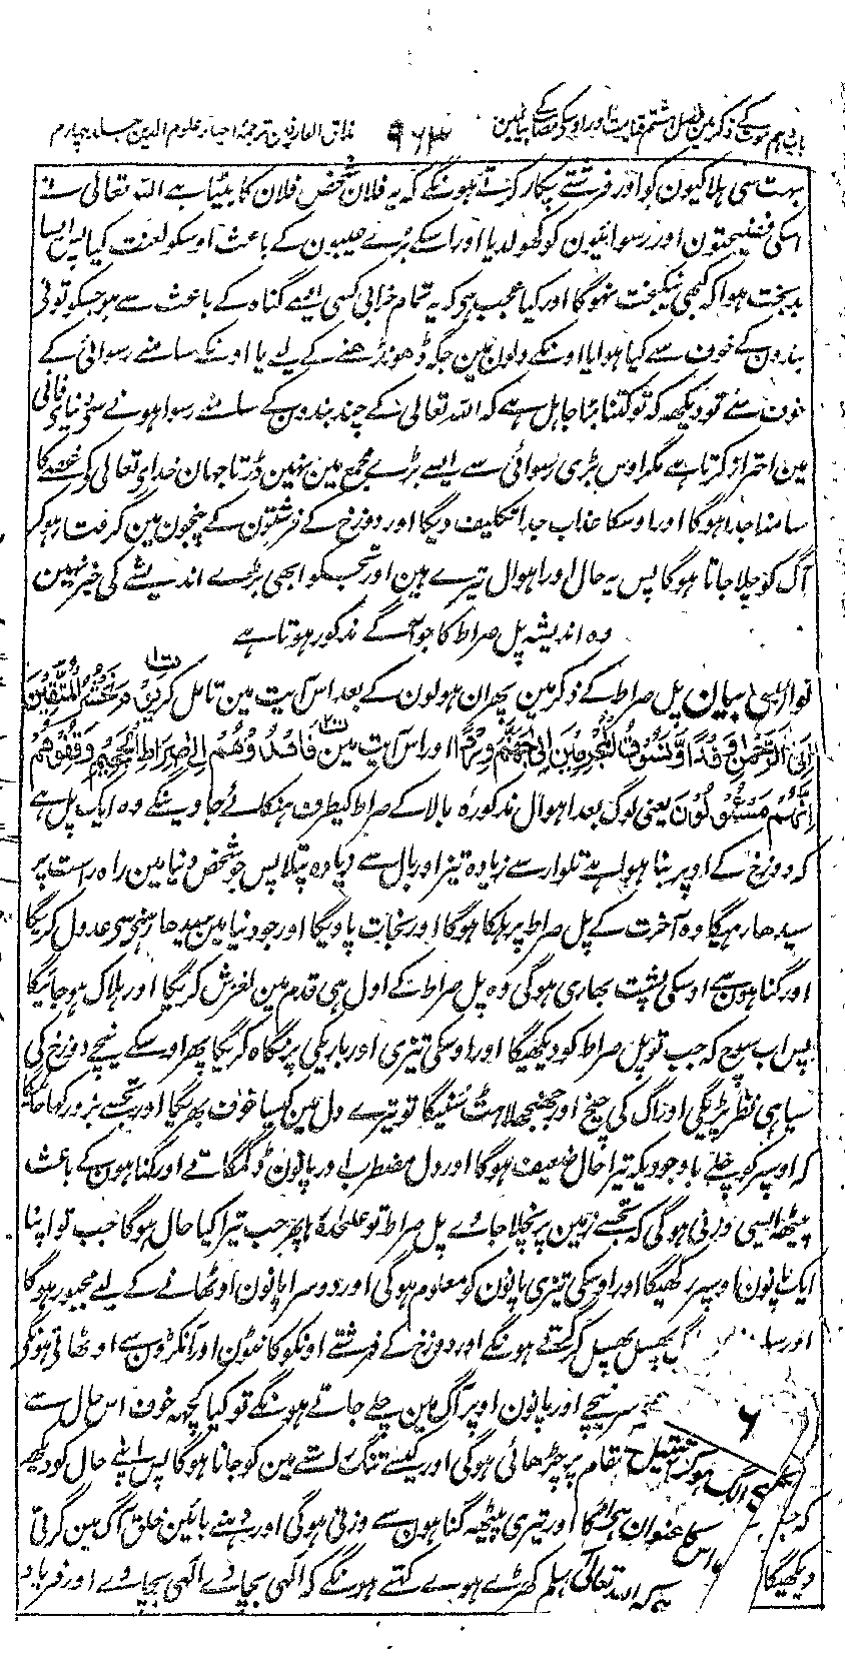 باب دہم موت کے ذکر مین فصل ہشتم قیامت اور اوسکے مصائب کے بیان مین ۹۶۳ مذاق العارفین ترجمہ احیاء علوم الدین جلد چہارم
بہت سی ہلاکیون کو اور فرشتے پکار کرتے ہونگے کہ یہ فلان شخص فلان کا بیٹا ہے اللہ تعالی نے
اسکی فضیحتون اور رسوائیون کو کھولدیا اور اسکے بُرے عیبون کے باعث اوسکو لعنت کیا پس ایسا
بدبخت ہوا کہ کبھی نیکبخت نہوگا اور کیا عجب ہو کہ یہ تمام خرابی کسی ایسے گناہ کے باعث سے ہو جسکو تو نی
بندون کے خوف سے کیا ہو یا اونکے دلون مین جگہ ڈھونڈھنے کے لیے یا اونکے سامنے رسوائی کے
خوف سے تو دیکھ کہ تو کتنا بڑا جاہل ہے کہ اللہ تعالی کے چند بندون کے سامنے رسوا ہونے سے دنیای فانی
مین احتراز کرتا ہے مگر اوس بڑی رسوائی سے ایسے بڑے مجمع مین نہین ڈرتا جہان خدای تعالی کے غصہ کا
سامنا جدا ہوگا اور اوسکا عذاب جدا تکلیف دیگا اور دوزخ کے فرشتون کے پنجون مین گرفتار ہوکر
آگ کو چلا جاتا ہوگا پس یہ حال اور اہوال تیرے ہین اور تجھکو ابھی بڑے اندیشے کی خبر نہین
وہ اندیشہ پل صراط کا جو آگے مذکور ہوتا ہے
نوان بیان پل صراط کے ذکر مین پھر ان ہولون کے بعد اس آیت مین تامل کر یوم نَحْشُرُ الْمُتَّقِیْنَ
اِلَی الرَّحْمٰنِ وَفْدًا وَّنَسُوْقُ الْمُجْرِمِیْنَ اِلٰی جَهَنَّمَ وِرْدًا اور اس آیت مین فَاهْدُوْهُمْ اِلٰی صِرَاطِ الْجَحِیْمِ وَقِفُوْهُمْ
اِنَّهُمْ مَسْئُوْلُوْنَ یعنی لوگ بعد اہوال مذکورہ بالا کے صراط کیطرف ہنکائے جاوینگے وہ ایک پل ہے
کہ دوزخ کے اوپر بنا ہوا ہے تلوار سے زیادہ تیز اور بال سے زیادہ پتلا پس جو شخص دنیا مین راہ راست پر
سیدھا رہیگا وہ آخرت کے پل صراط پر ہلکا ہوگا اور نجات پاویگا اور جو دنیا مین سیدھا رہنے سی عدول کریگا
اور گناہون سے اوسکی پشت بھاری ہوگی وہ پل صراط کے اول ہی قدم مین لغزش کریگا اور ہلاک ہوجائیگا
پس اب سوچ کہ جب تو پل صراط کو دیکھیگا اور اوسکی تیزی اور باریکی پر نگاہ کریگا پھر اوسکے نیچے دوزخ کی
سیاہی نظر پڑیگی اور آگ کی چیخ اور جھنجھلاہٹ سنیگا تو تیرے دل مین کیسا خوف بھریگا اور تجھسے بزور کہا جائیگا
کہ اوسپر کو چل باوجودیکہ تیرا حال ضعیف ہوگا اور دل مضطرب اور پانون ڈگمگاتے اور گناہون کے باعث
پیٹھ ایسی وزنی ہوگی کہ تجھسے زمین پر نچلا جاوے پل صراط تو علٰحدہ رہا پھر جب تیرا کیا حال ہوگا جب تو اپنا
ایک پانون اوسپر رکھیگا اور اوسکی تیزی پانون کو معلوم ہوگی اور دوسرا پانون اوٹھانے کے لیے مجبور ہوگا
اور پھسل پھسل کر گرتے ہونگے اور دوزخ کے فرشتے اونکو کانٹون اور آنکڑون سے اوٹھاتی ہونگے
سر نیچے اور پانون اوپر آگ مین چلے جاتے ہونگے تو کیا کچھ خوف اس حال سے
مقام پر چڑھائی ہوگی اور کیسے تنگ رستے مین کو جانا ہوگا پس اپنے حال کو دیکھ
کہ اور تیری پیٹھ گناہون سے وزنی ہوگی اور دہنے بائین خلق آگ مین گرتی
دیکھیگا کھڑے ہوے کہتے ہونگے کہ الٰہی بچاوے الٰہی بچاوے اور فریاد